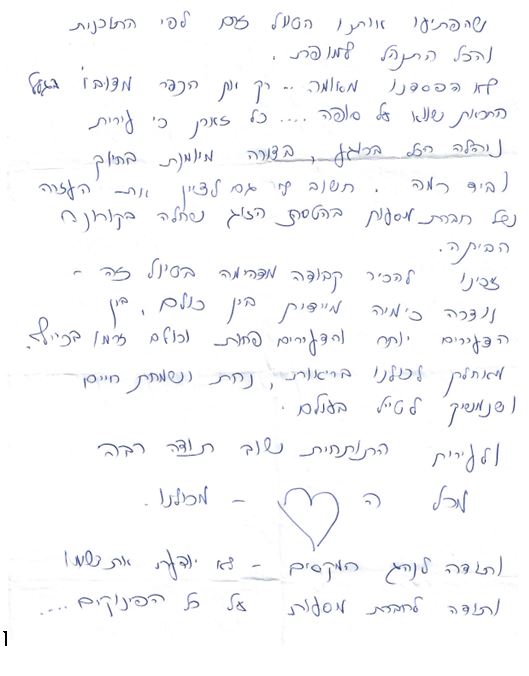 שהפתיעו אותנו הטיול זרם לפי התוכנית
והכל התנהל למופת.
לא הפסדנו מאומה... רק יום הכפר מדובר בגלל
התרעות שווא על סופה.... כל זאת כי עירית
ניהלה הכל ברוגע, בצורה מיומנת בחיוך
וביד רמה. חשוב לי גם לציין את העזרה
של חברת מסעות בהטסת הזוג שחלה בקורונה
הביתה.
זכינו להכיר קבוצה מדהימה בטיול זה -
נוצרה כימיה מיידית בין כולם, בין
הצעירים יותר והצעירים פחות וכולם זרמו בכייף.
מאחלת לכולנו בריאות, נחת ושמחת חיים
ושנמשיך לטייל בעולם.
ולעירית התותחית שוב תודה רבה
מכל ה - מכולנו.
ותודה לנהג המקסים - לא יודעת את שמו
ותודה לחברת מסעות על כל הפינוקים....
1